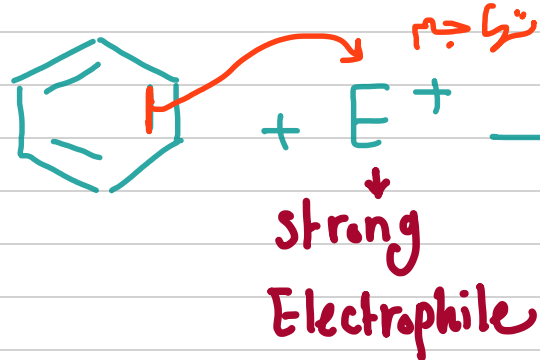 تهاجم
+ E⁺
strong
Electrophile